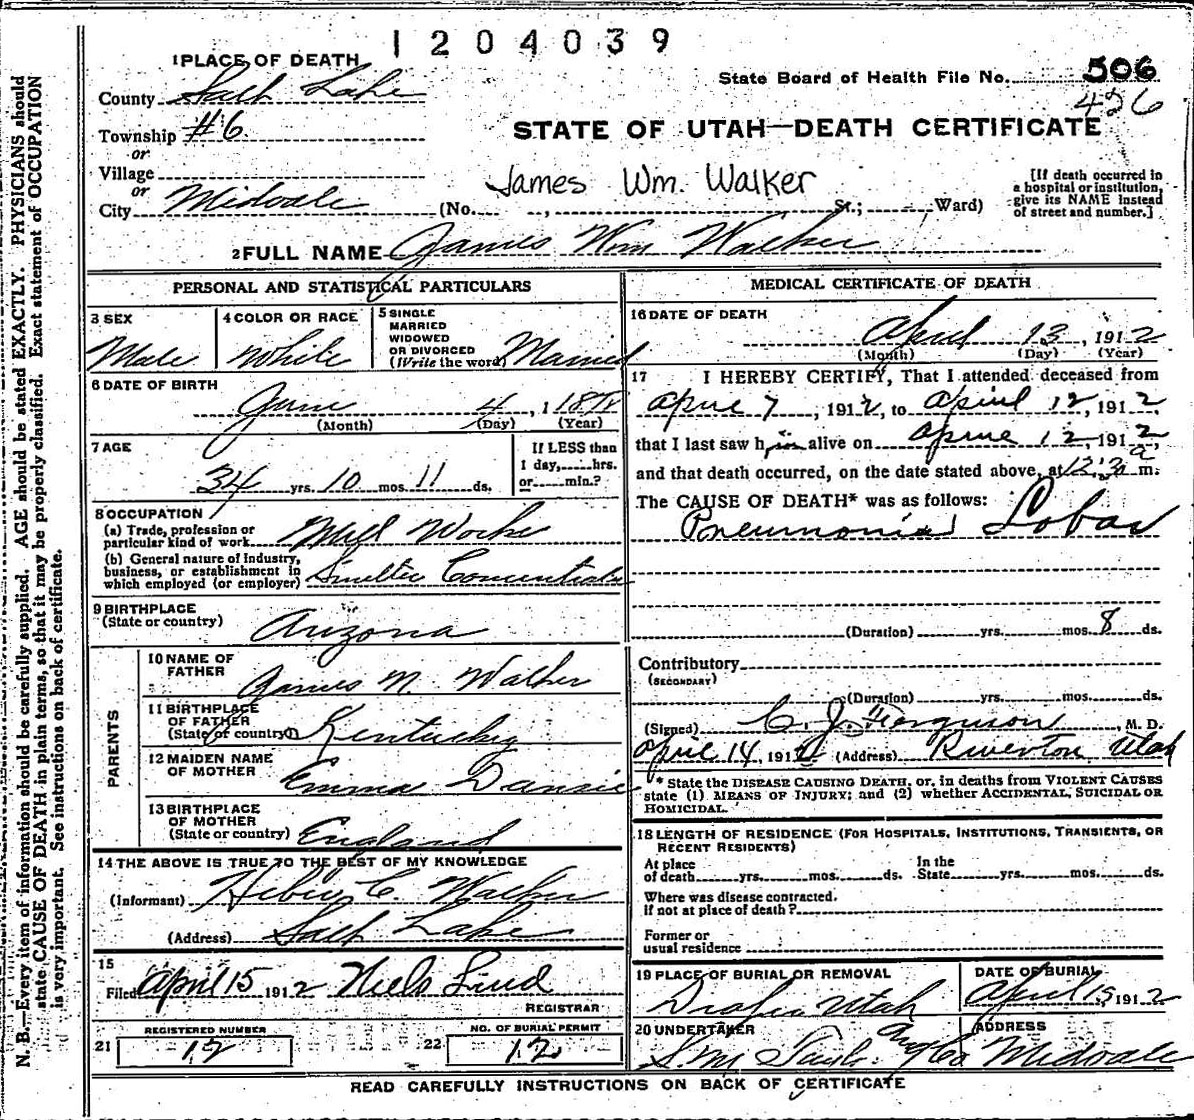 1204039
1 PLACE OF DEATH
State Board of Health File No. 506
426
County Salt Lake
Township #6
or
Village
or
City Midvale (No. , St.; Ward)
STATE OF UTAH—DEATH CERTIFICATE
James Wm. Walker
[If death occurred in a hospital or institution, give its NAME instead of street and number.]
2 FULL NAME James Wm Walker
PERSONAL AND STATISTICAL PARTICULARS
3 SEX
Male
4 COLOR OR RACE
White
5 SINGLE
MARRIED
WIDOWED
OR DIVORCED
(Write the word) Married
6 DATE OF BIRTH
June 4, 1
(Month) (Day) (Year)
7 AGE
34 yrs. 10 mos. 11 ds.
If LESS than
1 day, hrs.
or min.?
8 OCCUPATION
(a) Trade, profession or
particular kind of work Mill Worker
(b) General nature of industry,
business, or establishment in
which employed (or employer) Smelter
9 BIRTHPLACE
(State or country) Arizona
PARENTS
10 NAME OF
FATHER James M. Walker
11 BIRTHPLACE
OF FATHER
(State or country) Kentucky
12 MAIDEN NAME
OF MOTHER Emma Dansie
13 BIRTHPLACE
OF MOTHER
(State or country) England
14 THE ABOVE IS TRUE TO THE BEST OF MY KNOWLEDGE
(Informant) C. Walker
(Address) Salt Lake
15
Filed April 15 1912 Niels Lind
REGISTRAR
REGISTERED NUMBER
21 12
NO. OF BURIAL PERMIT
22 12
MEDICAL CERTIFICATE OF DEATH
16 DATE OF DEATH
April 13, 1912
(Month) (Day) (Year)
17 I HEREBY CERTIFY, That I attended deceased from
April 7, 1912, to April 12, 1912,
that I last saw him alive on April 12, 1912,
and that death occurred, on the date stated above, at 12:30 a m.
The CAUSE OF DEATH* was as follows:
Pneumonia Lobar
(Duration) yrs. mos. 8 ds.
Contributory
(SECONDARY)
(Duration) yrs. mos. ds.
(Signed) C. J. Ferguson, M. D.
April 14, 1912 (Address) Riverton Utah
* State the DISEASE CAUSING DEATH, or, in deaths from VIOLENT CAUSES
state (1) MEANS OF INJURY; and (2) whether ACCIDENTAL, SUICIDAL OR
HOMICIDAL.
18 LENGTH OF RESIDENCE (FOR HOSPITALS, INSTITUTIONS, TRANSIENTS, OR
RECENT RESIDENTS)
At place
of death yrs. mos. ds.
In the
State yrs. mos. ds.
Where was disease contracted,
if not at place of death?
Former or
usual residence
19 PLACE OF BURIAL OR REMOVAL
Draper Utah
DATE OF BURIAL
April 15 1912
20 UNDERTAKER
S. M.
ADDRESS
Midvale
READ CAREFULLY INSTRUCTIONS ON BACK OF CERTIFICATE
N. B.—Every item of information should be carefully supplied. AGE should be stated EXACTLY. PHYSICIANS should
state CAUSE OF DEATH in plain terms, so that it may be properly classified. Exact statement of OCCUPATION
is very important. See instructions on back of certificate.